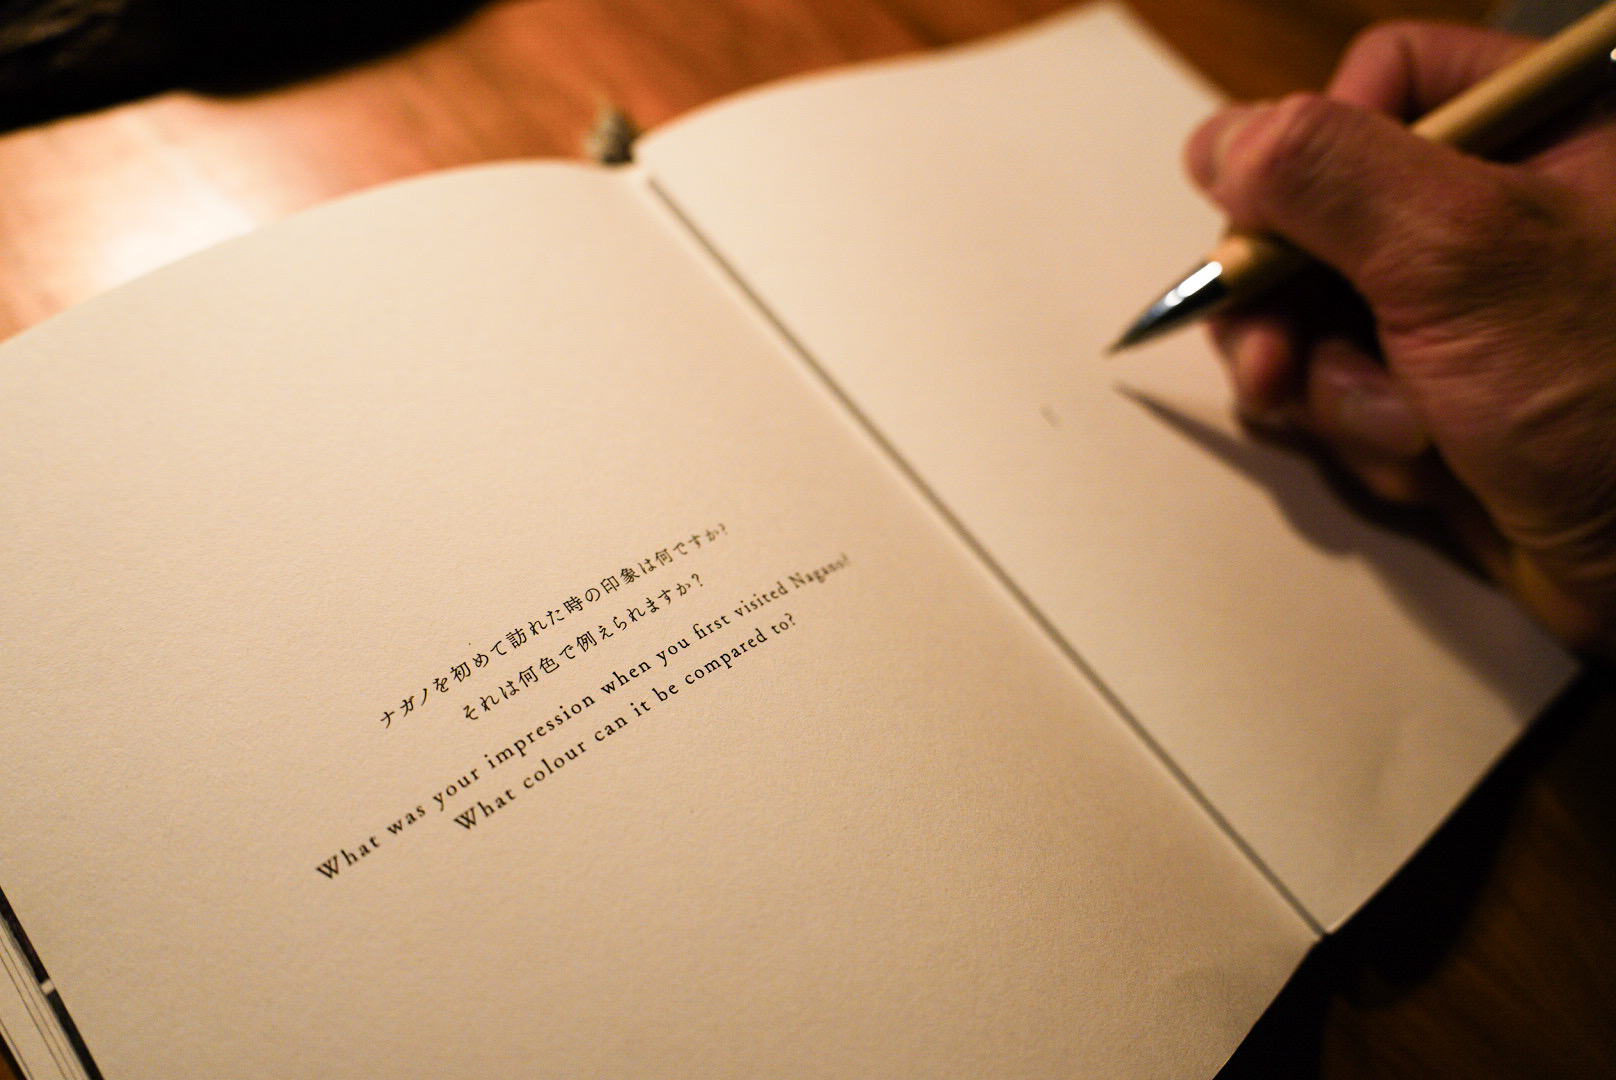 ナガノを初めて訪れた時の印象は何ですか?
それは何色で例えられますか?
What was your impression when you first visited Nagano?
What colour can it be compared to?